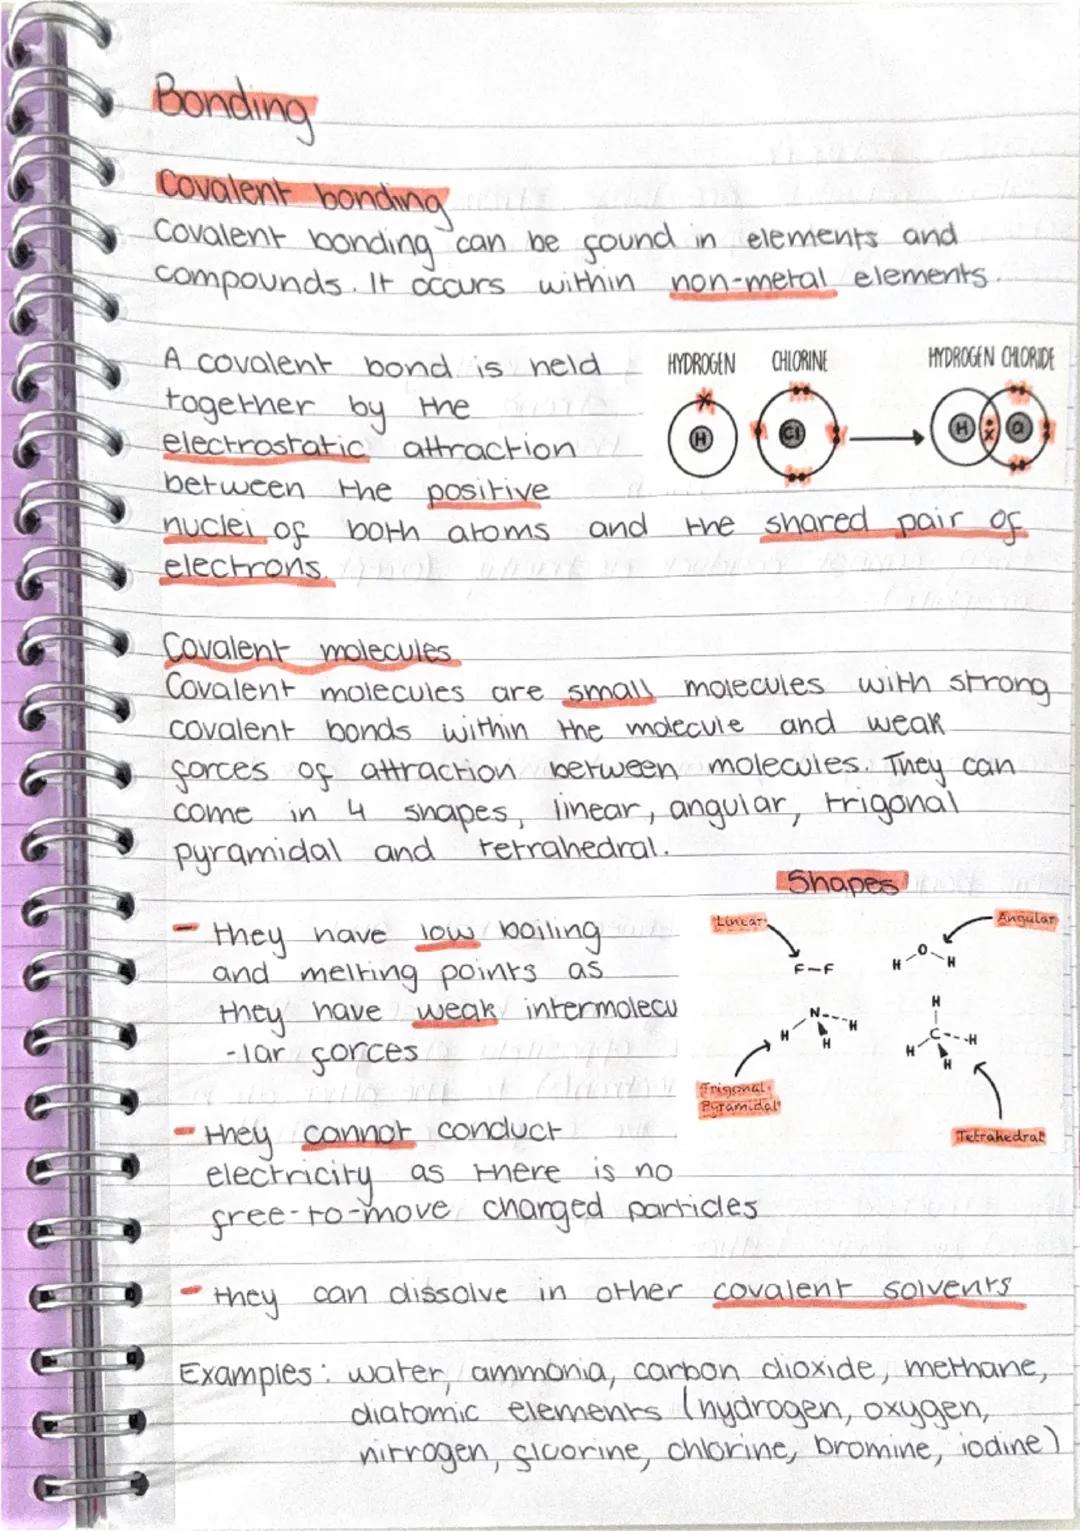 Bonding
Covalent bonding
Covalent bonding can be found in elements and
compounds. It occurs within non-metal elements.
A covalent bond is held
together by the
electrostatic attraction
between the positive
nuclei of both atoms and the shared pair of
electrons.
HYDROGEN CHLORINE HYDROGEN CHLORIDE
H Cl H Cl
Covalent molecules
Covalent molecules are small molecules with strong
covalent bonds within the molecule and weak
forces of attraction between molecules. They can
come in 4 shapes, linear, angular, trigonal
pyramidal and tetrahedral.
Shapes
Linear
Angular
F-F
O
H H
N
H H
H
H
C
H H
H
Trigonal
Pyramidal
Tetrahedral
- they have low boiling
and melting points as
they have weak intermolecu
-lar forces
- they cannot conduct
electricity as there is no
free-to-move charged particles
- they can dissolve in other covalent solvents
Examples: water, ammonia, carbon dioxide, methane,
diatomic elements (hydrogen, oxygen,
nitrogen, fluorine, chlorine, bromine, iodine)